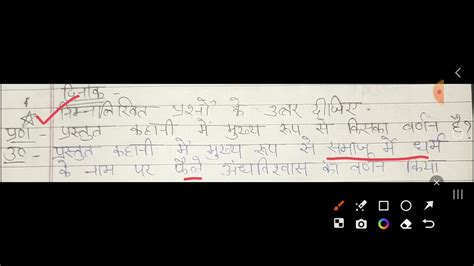 दिनांक -
निम्नलिखित प्रश्नों के उत्तर दीजिए -
प्र01 - प्रस्तुत कहानी में मुख्य रूप से किसका वर्णन है?
उ0 - प्रस्तुत कहानी में मुख्य रूप से समाज में धर्म
के नाम पर फैले अंधविश्वास का वर्णन किया